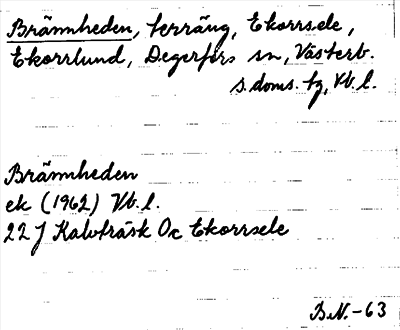 Brännheden, terräng, Ekorrsele,
Ekorrlund, Degerfors sn, Västerb.
s. doms. tg, Vb. l.
Brännheden
ek (1962) Vb. l.
22 J Kalvträsk Oc Ekorrsele
B.N.-63